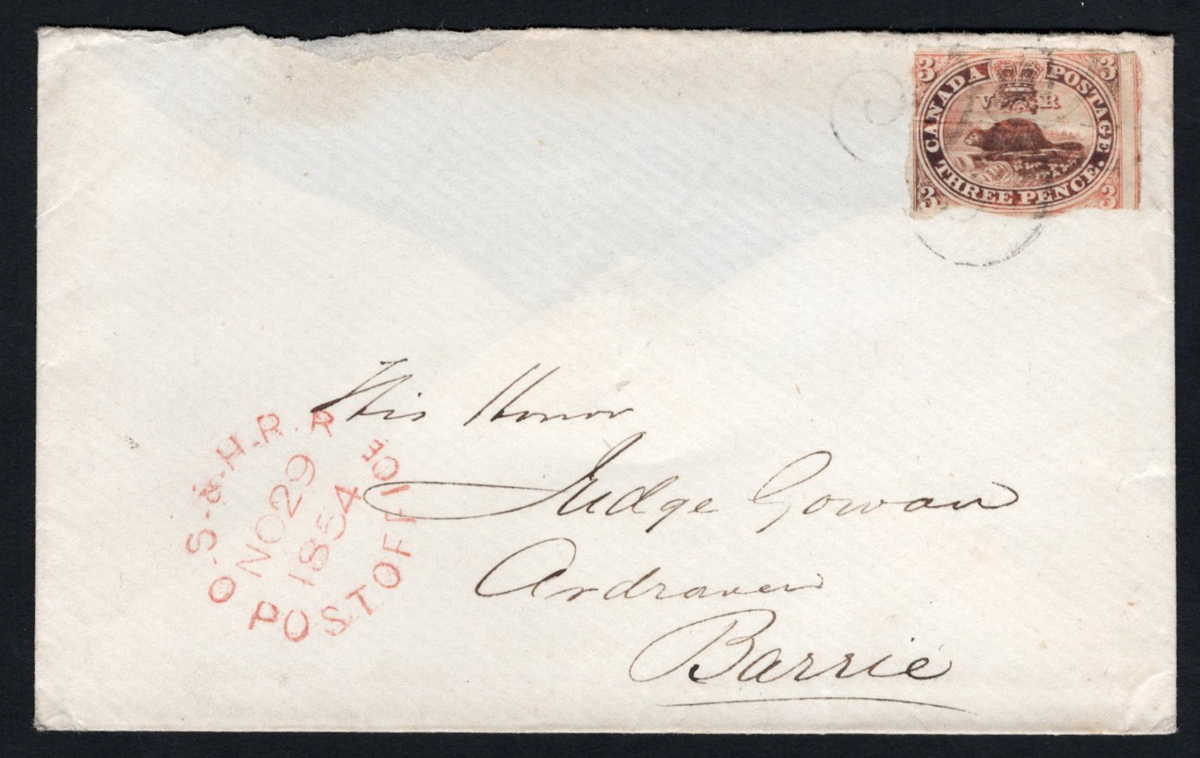 3 CANADA POSTAGE. 3
V R
3 THREE PENCE. 3
His Honor
Judge Gowan
Ardraven
Barrie
O-S-&-H-R.R
NO 29
1854
POST OFFICE